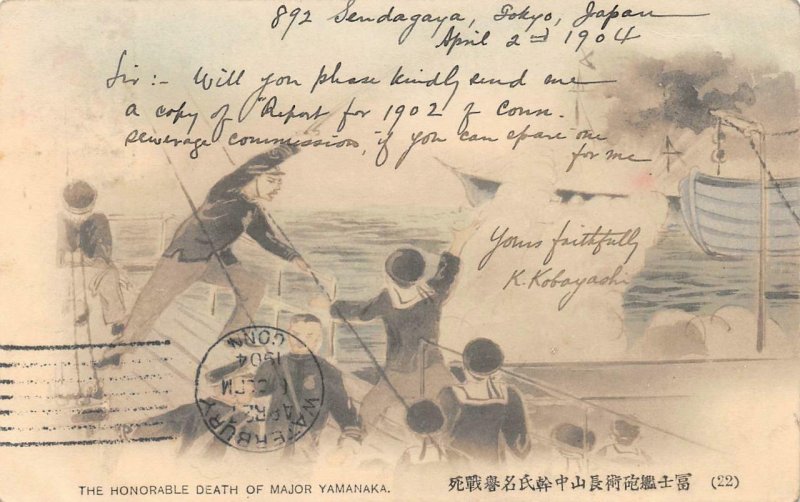 892 Sendagaya, Tokyo, Japan
April 2nd 1904
Sir:- Will you please kindly send me
a copy of "Report for 1902 of Conn.
sewerage commission, if you can spare one
for me
Yours faithfully
K. Kobayashi
WATERBURY
CONN
1904
THE HONORABLE DEATH OF MAJOR YAMANAKA.
冨士艦砲術長山中幹氏名譽戰死
(22)